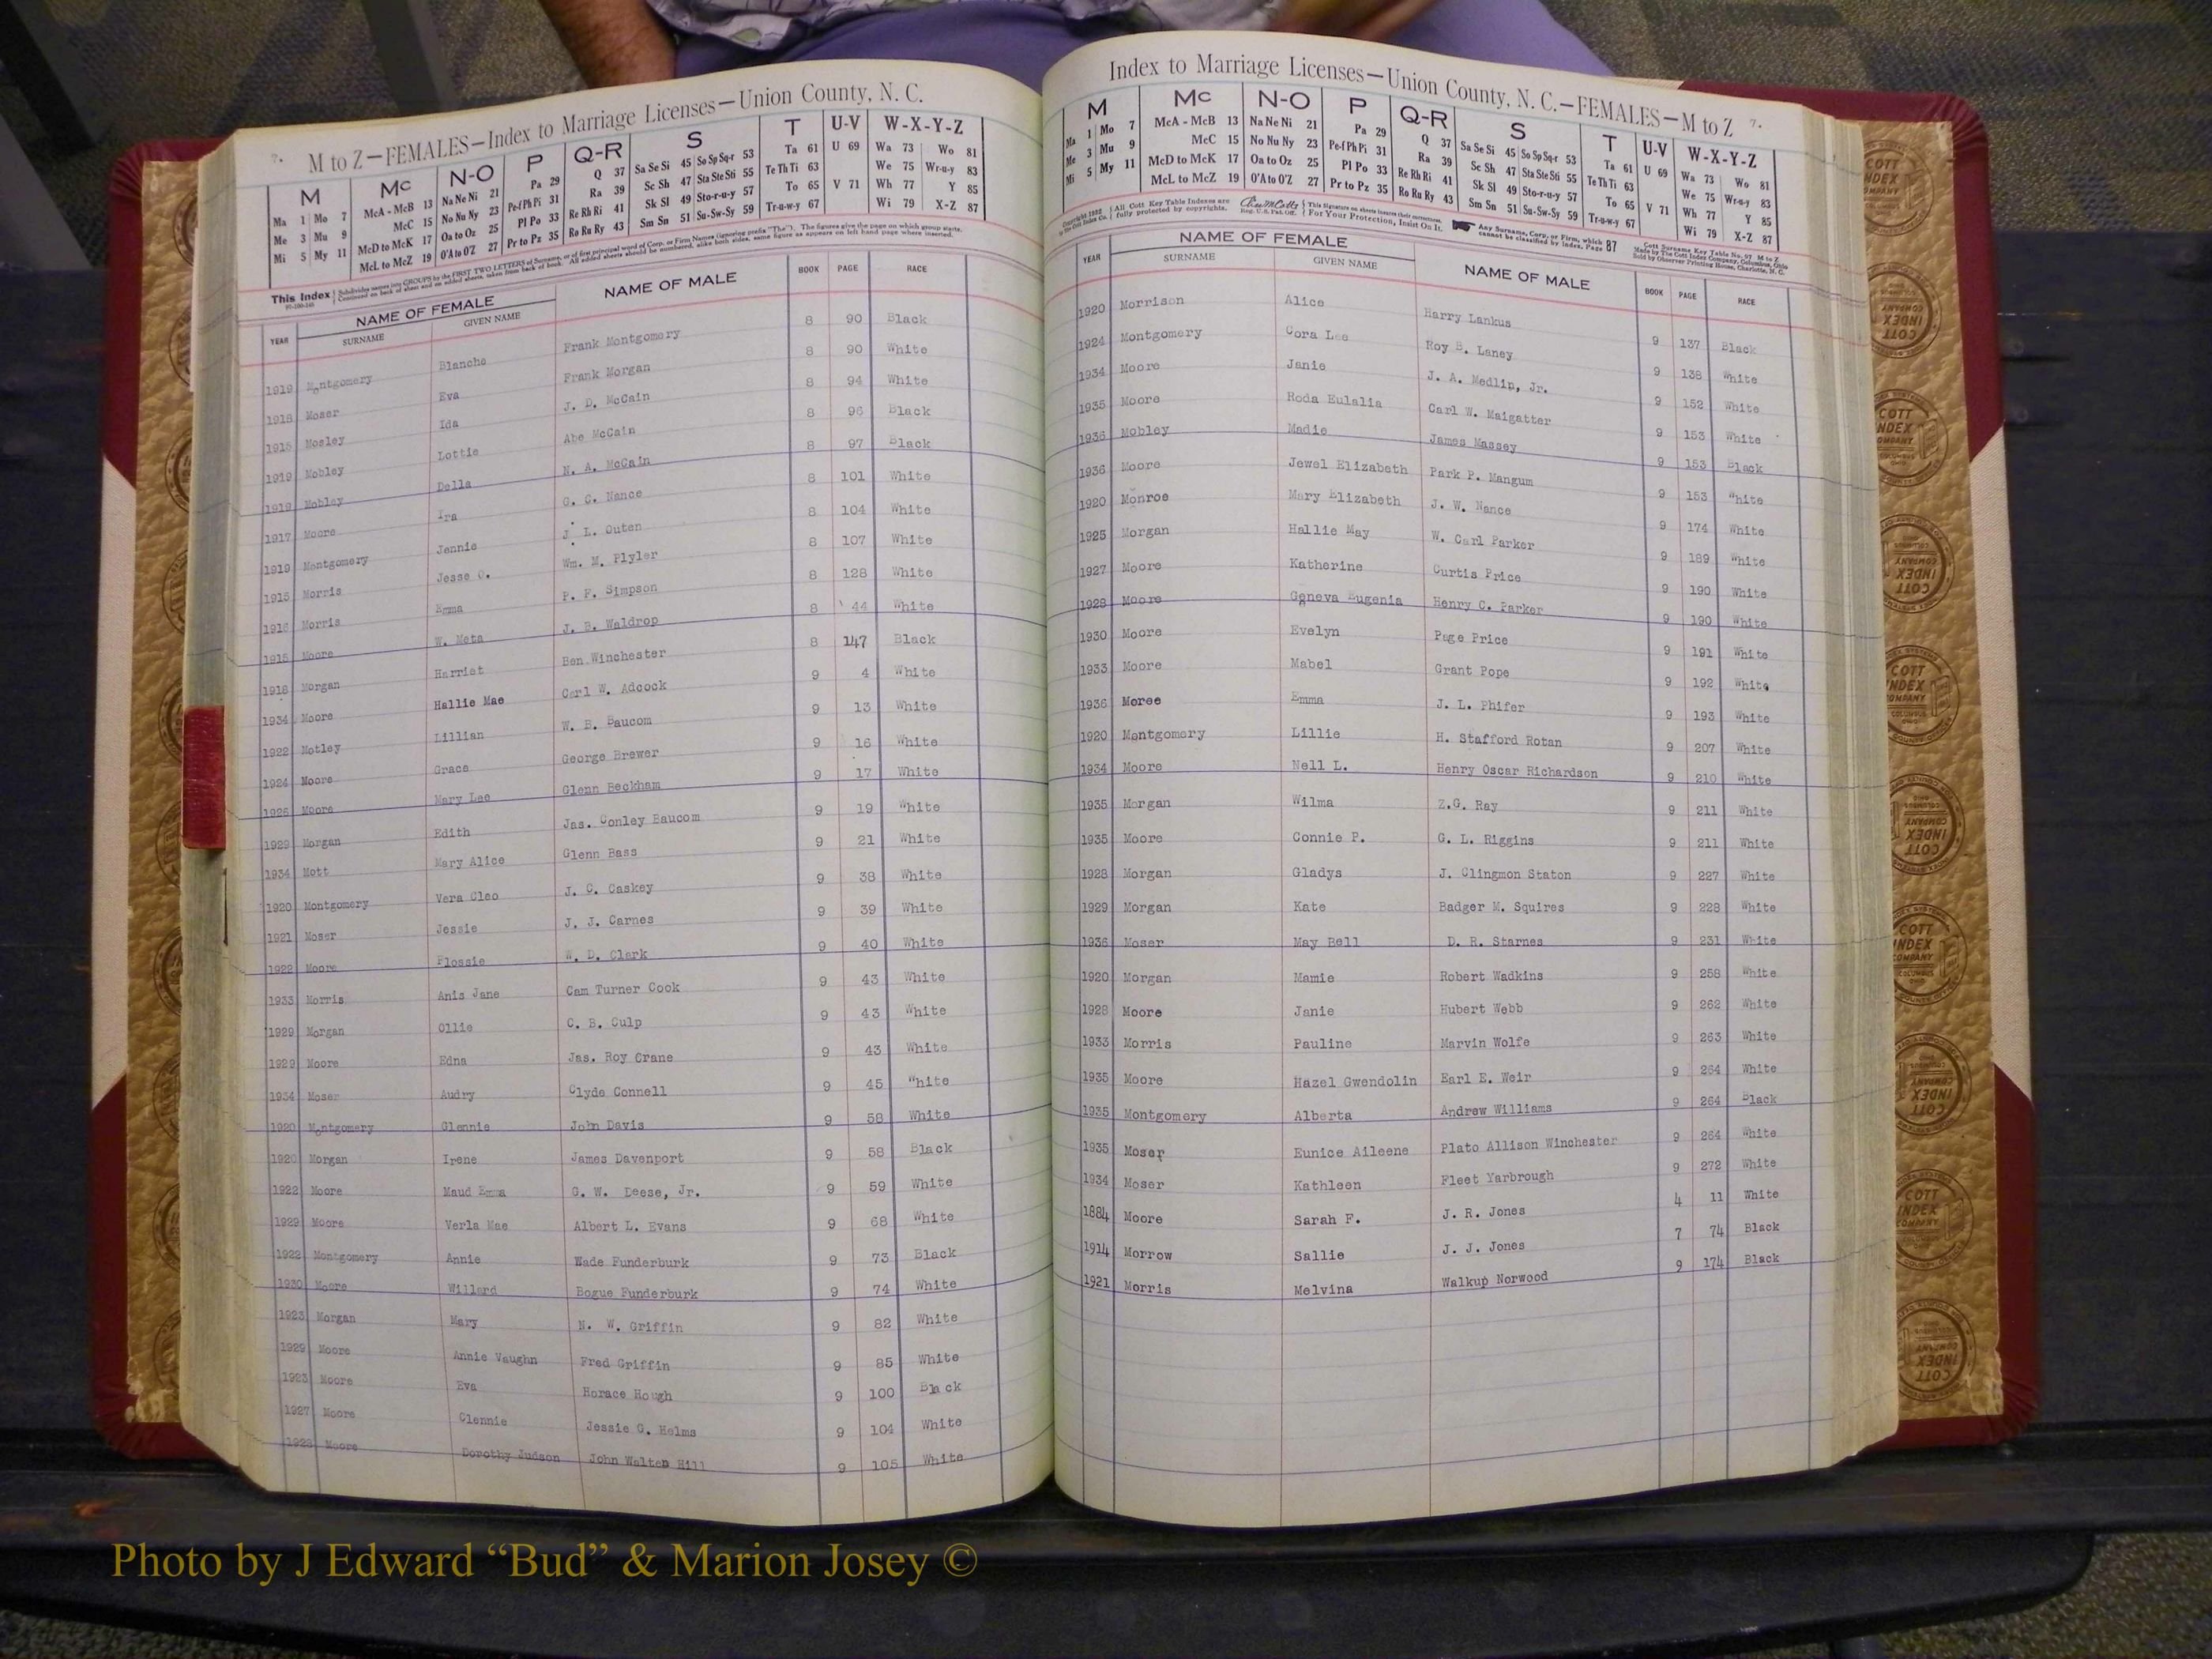 7.
M to Z—FEMALES—Index to Marriage Licenses—Union County, N. C.
M Mc N-O P Q-R S T U-V W-X-Y-Z
Ma 1 Mo 7 McA - McB 13 Na Ne Ni 21 Pa 29 Q 37 Sa Se Si 45 So Sp Sq-r 53 Ta 61 U 69 Wa 73 Wo 81
Me 3 Mu 9 McC 15 No Nu Ny 23 Pe-f Ph Pi 31 Ra 39 Sc Sh 47 Sta Ste Sti 55 Te Th Ti 63 We 75 Wr-u-y 83
Mi 5 My 11 McD to McK 17 Oa to Oz 25 Pl Po 33 Re Rh Ri 41 Sk Sl 49 Sto-r-u-y 57 To 65 V 71 Wh 77 Y 85
McL to McZ 19 O'A to O'Z 27 Pr to Pz 35 Ro Ru Ry 43 Sm Sn 51 Su-Sw-Sy 59 Tr-u-w-y 67 Wi 79 X-Z 87
This Index Subdivides names into GROUPS by the FIRST TWO LETTERS of Surname, or of first principal word of Corp. or Firm Names (ignoring prefix "The"). The figures give the page on which group starts.
Continued on back of sheet and on added sheets, taken from back of book. All added sheets should be numbered, alike both sides, same figure as appears on left hand page where inserted.
YEAR NAME OF FEMALE SURNAME GIVEN NAME NAME OF MALE BOOK PAGE RACE
1919 Montgomery Blanche Frank Montgomery 8 90 Black
1918 Moser Eva Frank Morgan 8 90 White
1915 Mosley Ida J. D. McCain 8 94 White
1919 Mobley Lottie Abe McCain 8 96 Black
1919 Mobley Della N. A. McCain 8 97 Black
1917 Moore Ira G. C. Nance 8 101 White
1919 Montgomery Jennie J. L. Outen 8 104 White
1915 Morris Jesse O. Wm. M. Plyler 8 107 White
1916 Morris Emma P. F. Simpson 8 128 White
1915 Moore W. Meta J. B. Waldrop 8 44 White
1918 Morgan Harriet Ben Winchester 8 147 Black
1934 Moore Hallie Mae Carl W. Adcock 9 4 White
1922 Motley Lillian W. B. Baucom 9 13 White
1924 Moore Grace George Brewer 9 16 White
1925 Moore Mary Lee Glenn Beckham 9 17 White
1929 Morgan Edith Jas. Conley Baucom 9 19 White
1934 Mott Mary Alice Glenn Bass 9 21 White
1920 Montgomery Vera Cleo J. C. Caskey 9 38 White
1921 Moser Jessie J. J. Carnes 9 39 White
1922 Moore Flossie W. D. Clark 9 40 White
1933 Morris Anis Jane Cam Turner Cook 9 43 White
1929 Morgan Ollie C. B. Culp 9 43 White
1929 Moore Edna Jas. Roy Crane 9 43 White
1934 Moser Audry Clyde Connell 9 45 White
1920 Montgomery Glennie John Davis 9 58 White
1920 Morgan Irene James Davenport 9 58 Black
1922 Moore Maud Emma G. W. Deese, Jr. 9 59 White
1929 Moore Verla Mae Albert L. Evans 9 68 White
1922 Montgomery Annie Wade Funderburk 9 73 Black
1930 Moore Willard Bogue Funderburk 9 74 White
1923 Morgan Mary N. W. Griffin 9 82 White
1929 Moore Annie Vaughn Fred Griffin 9 85 White
1923 Moore Eva Horace Hough 9 100 Black
1927 Moore Clennie Jessie G. Helms 9 104 White
1928 Moore Dorothy Judson John Walten Hill 9 105 White
Index to Marriage Licenses—Union County, N. C.—FEMALES—M to Z 7.
M Mc N-O P Q-R S T U-V W-X-Y-Z
Ma 1 Mo 7 McA - McB 13 Na Ne Ni 21 Pa 29 Q 37 Sa Se Si 45 So Sp Sq-r 53 Ta 61 U 69 Wa 73 Wo 81
Me 3 Mu 9 McC 15 No Nu Ny 23 Pe-f Ph Pi 31 Ra 39 Sc Sh 47 Sta Ste Sti 55 Te Th Ti 63 We 75 Wr-u-y 83
Mi 5 My 11 McD to McK 17 Oa to Oz 25 Pl Po 33 Re Rh Ri 41 Sk Sl 49 Sto-r-u-y 57 To 65 V 71 Wh 77 Y 85
McL to McZ 19 O'A to O'Z 27 Pr to Pz 35 Ro Ru Ry 43 Sm Sn 51 Su-Sw-Sy 59 Tr-u-w-y 67 Wi 79 X-Z 87
All Cott Key Table Indexes are fully protected by copyrights. Reg. U.S. Pat. Off. This Signature on sheets insures their correctness. For Your Protection, Insist On It. Any Surname, Corp. or Firm, which cannot be classified by index, Page 87
Cott Surname Key Table No. 97 M to Z
Made by The Cott Index Company, Columbus, Ohio
Sold by Observer Printing House, Charlotte, N. C.
YEAR NAME OF FEMALE SURNAME GIVEN NAME NAME OF MALE BOOK PAGE RACE
1920 Morrison Alice Harry Lankus 9 137 Black
1924 Montgomery Cora Lee Roy B. Laney 9 138 White
1934 Moore Janie J. A. Medlin, Jr. 9 152 White
1935 Moore Roda Eulalia Carl W. Maigatter 9 153 White
1936 Mobley Madie James Massey 9 153 Black
1936 Moore Jewel Elizabeth Park P. Mangum 9 153 White
1920 Monroe Mary Elizabeth J. W. Nance 9 174 White
1925 Morgan Hallie May W. Carl Parker 9 189 White
1927 Moore Katherine Curtis Price 9 190 White
1928 Moore Geneva Eugenia Henry C. Parker 9 190 White
1930 Moore Evelyn Page Price 9 191 White
1933 Moore Mabel Grant Pope 9 192 White
1936 Moree Emma J. L. Phifer 9 193 White
1920 Montgomery Lillie H. Stafford Rotan 9 207 White
1934 Moore Nell L. Henry Oscar Richardson 9 210 White
1935 Morgan Wilma Z.G. Ray 9 211 White
1935 Moore Connie P. G. L. Riggins 9 211 White
1928 Morgan Gladys J. Clingmon Staton 9 227 White
1929 Morgan Kate Badger M. Squires 9 228 White
1936 Moser May Bell D. R. Starnes 9 231 White
1920 Morgan Mamie Robert Wadkins 9 258 White
1928 Moore Janie Hubert Webb 9 262 White
1933 Morris Pauline Marvin Wolfe 9 263 White
1935 Moore Hazel Gwendolin Earl E. Weir 9 264 White
1935 Montgomery Alberta Andrew Williams 9 264 Black
1935 Moser Eunice Aileene Plato Allison Winchester 9 264 White
1934 Moser Kathleen Fleet Yarbrough 9 272 White
1884 Moore Sarah F. J. R. Jones 4 11 White
1914 Morrow Sallie J. J. Jones 7 74 Black
1921 Morris Melvina Walkup Norwood 9 174 Black
COTT INDEX COMPANY COLUMBUS OHIO
Photo by J Edward “Bud” & Marion Josey ©